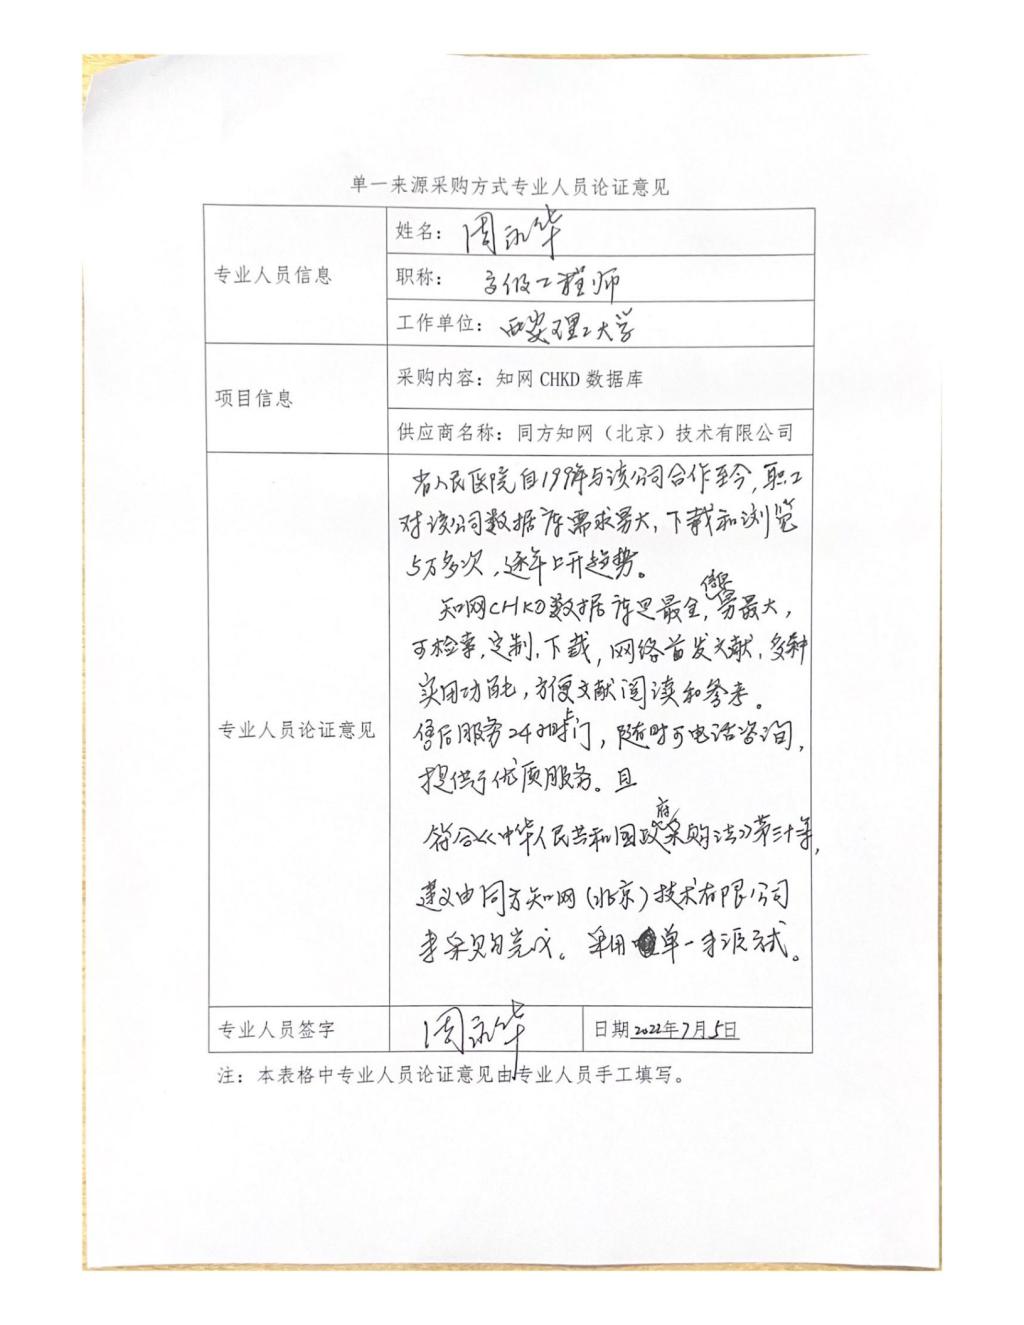 单一来源采购方式专业人员论证意见
专业人员信息
姓名：周永华
职称：高级工程师
工作单位：西安理工大学
项目信息
采购内容：知网 CHKD 数据库
供应商名称：同方知网（北京）技术有限公司
专业人员论证意见
省人民医院自199年与该公司合作至今，职工
对该公司数据库需求量大，下载和浏览
5万多次，逐年上升趋势。
知网CHKD数据库是最全，信息量最大，
可检索，定制，下载，网络首发文献，多种
实用功能，方便文献阅读和参考。
售后服务24小时上门，随时可电话咨询，
提供了优质服务。且
符合《中华人民共和国政府采购法》第三十条，
建议由同方知网（北京）技术有限公司
来采购完成。采用单一来源方式。
专业人员签字
周永华
日期2022年7月5日
注：本表格中专业人员论证意见由专业人员手工填写。